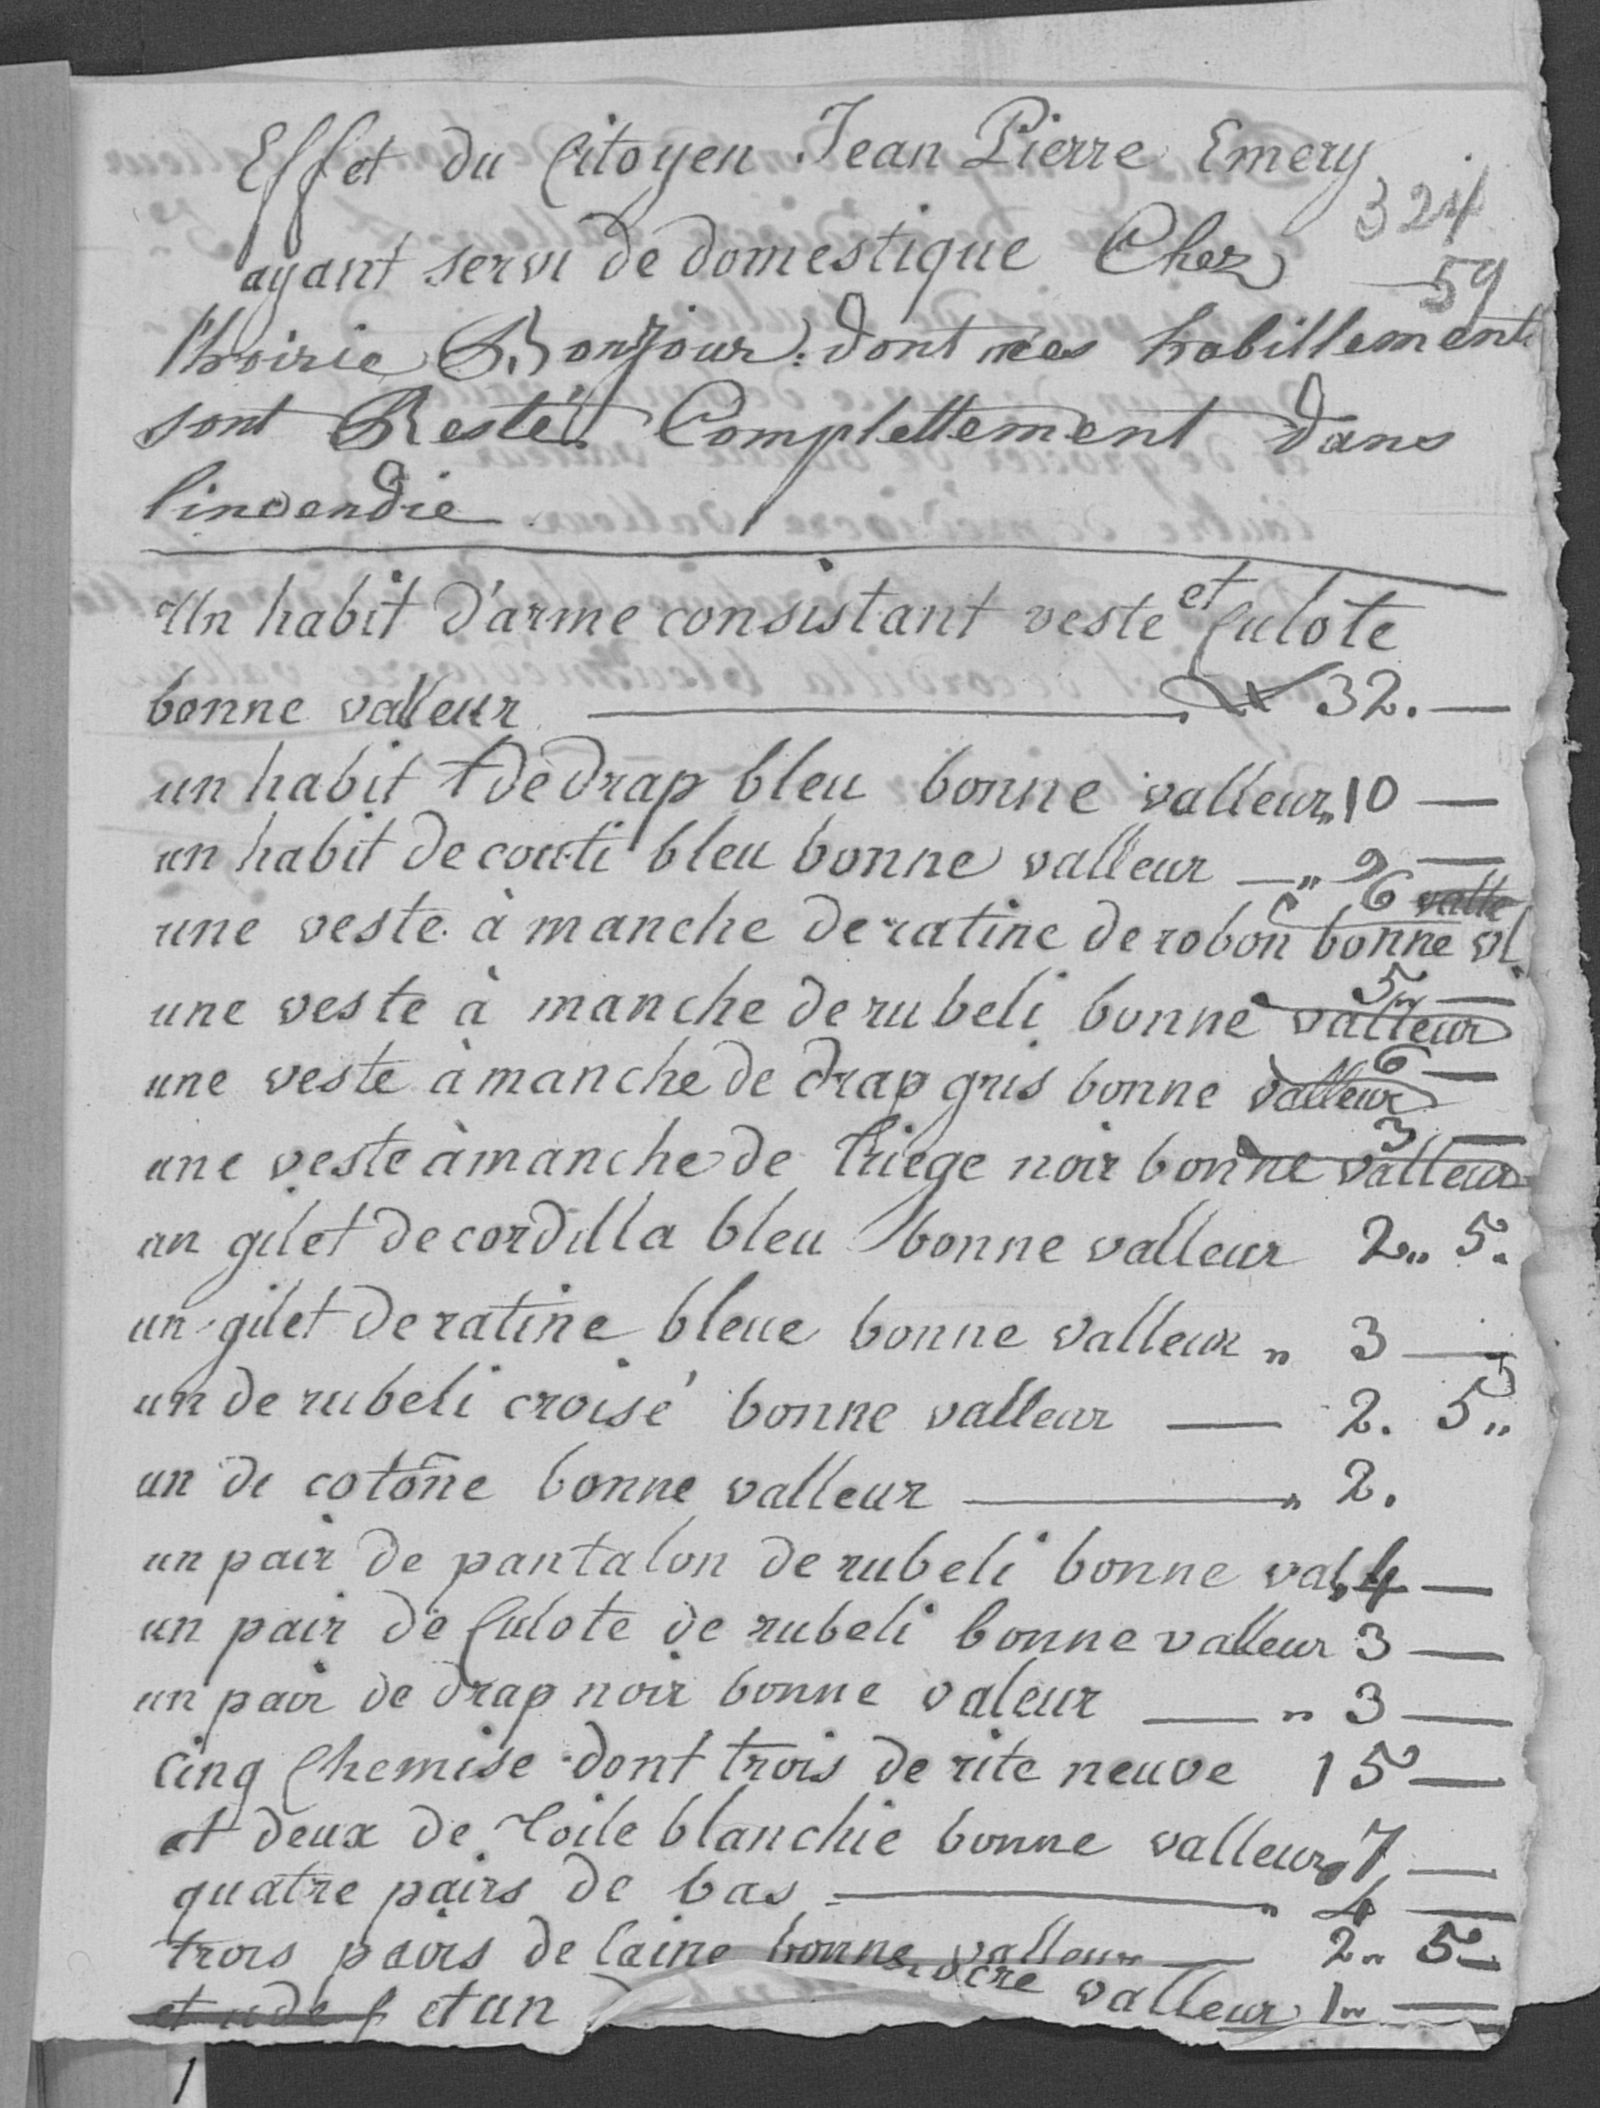 Effet du Citoyen Jean Pierre Emery
324
ayant servi de domestique Chez
59
l'hoirie Bonjour. dont mes habillement
sont Resté. Complettement dans
l'incendie
Un habit d'arme consistant veste et Culote
bonne valleur 32. —
un habit de drap bleu bonne valleur „ 10 —
un habit de couti bleu bonne valleur — „ 9 —
6 valle
une veste à manche de ratine de robon bonne vl.
5 „ —
une veste à manche de rubeli bonne valleur
6 —
une veste à manche de drap gris bonne valleur
3 —
une veste à manche de triege noir bonne valleur
un gilet de cordilla bleu bonne valleur 2 „ 5.
un gilet de ratine bleue bonne valleur „ 3 —
un de rubeli croisé bonne valleur — 2. 5 „
un de cotõne bonne valleur — „ 2.
un pair de pantalon de rubeli bonne val. 4 —
un pair de Culote de rubeli bonne valleur 3 —
un pair de drap noir bonne valeur — „ 3 —
Cinq Chemise dont trois de rite neuve 15 —
et deux de toile blanchie bonne valleur „ 7 —
quatre pairs de bas — „ 4 —
trois pairs de laine bonne valleur — 2 „ 5 —
et un valleur 1 „ —
1